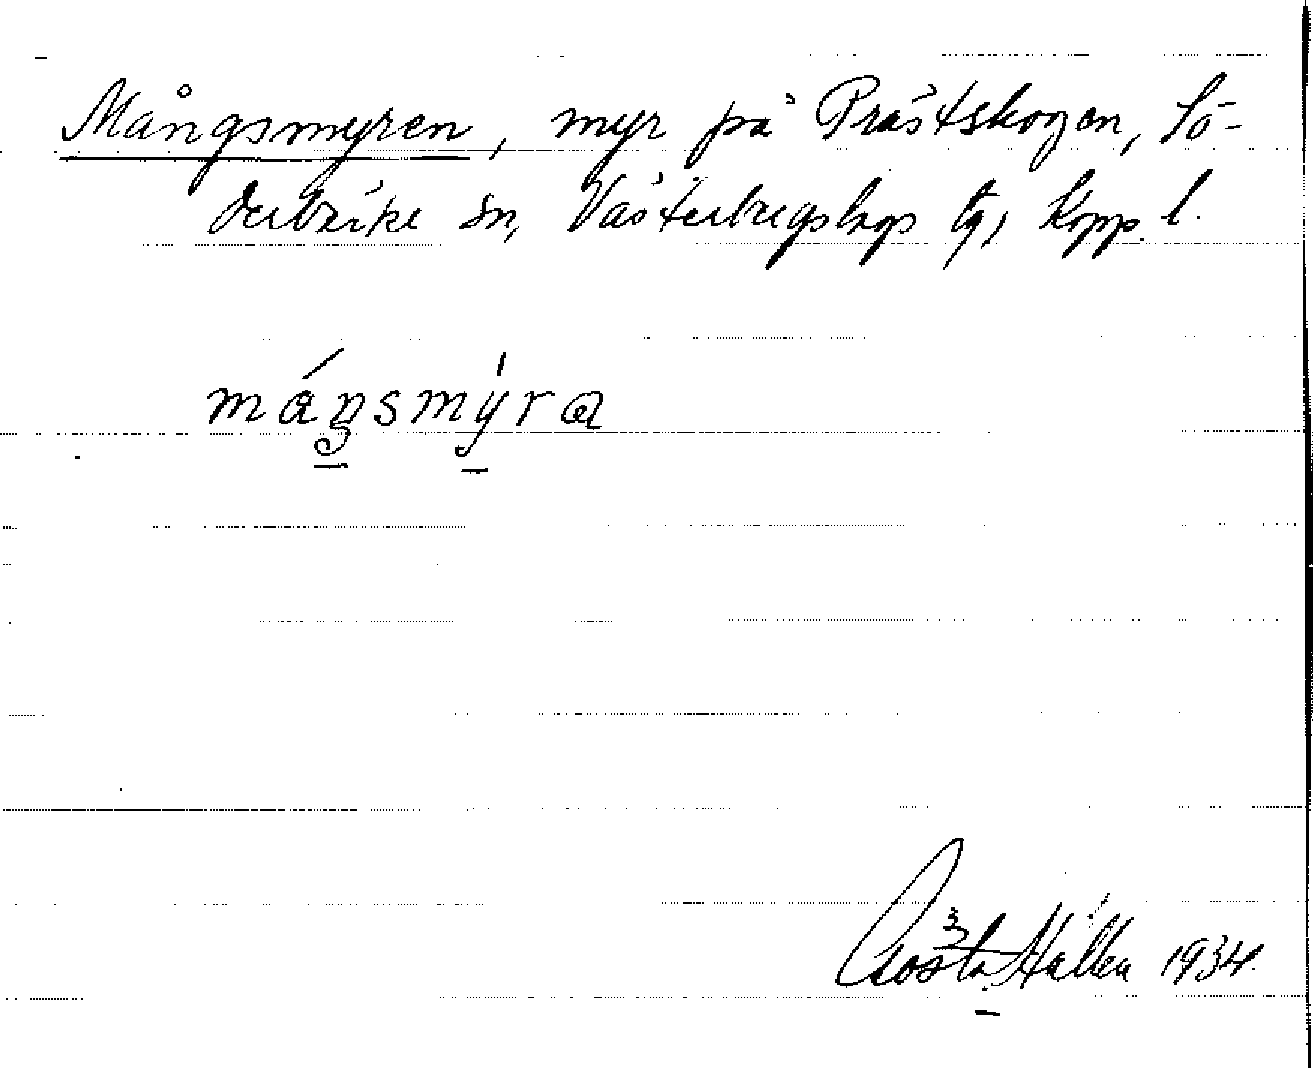 Mångsmyren, myr på Prästskogen, Sö-
derbärke sn, Västerbergslags tg, Kopp. l.
máŋsmýra
Gösta Hälla 1934.